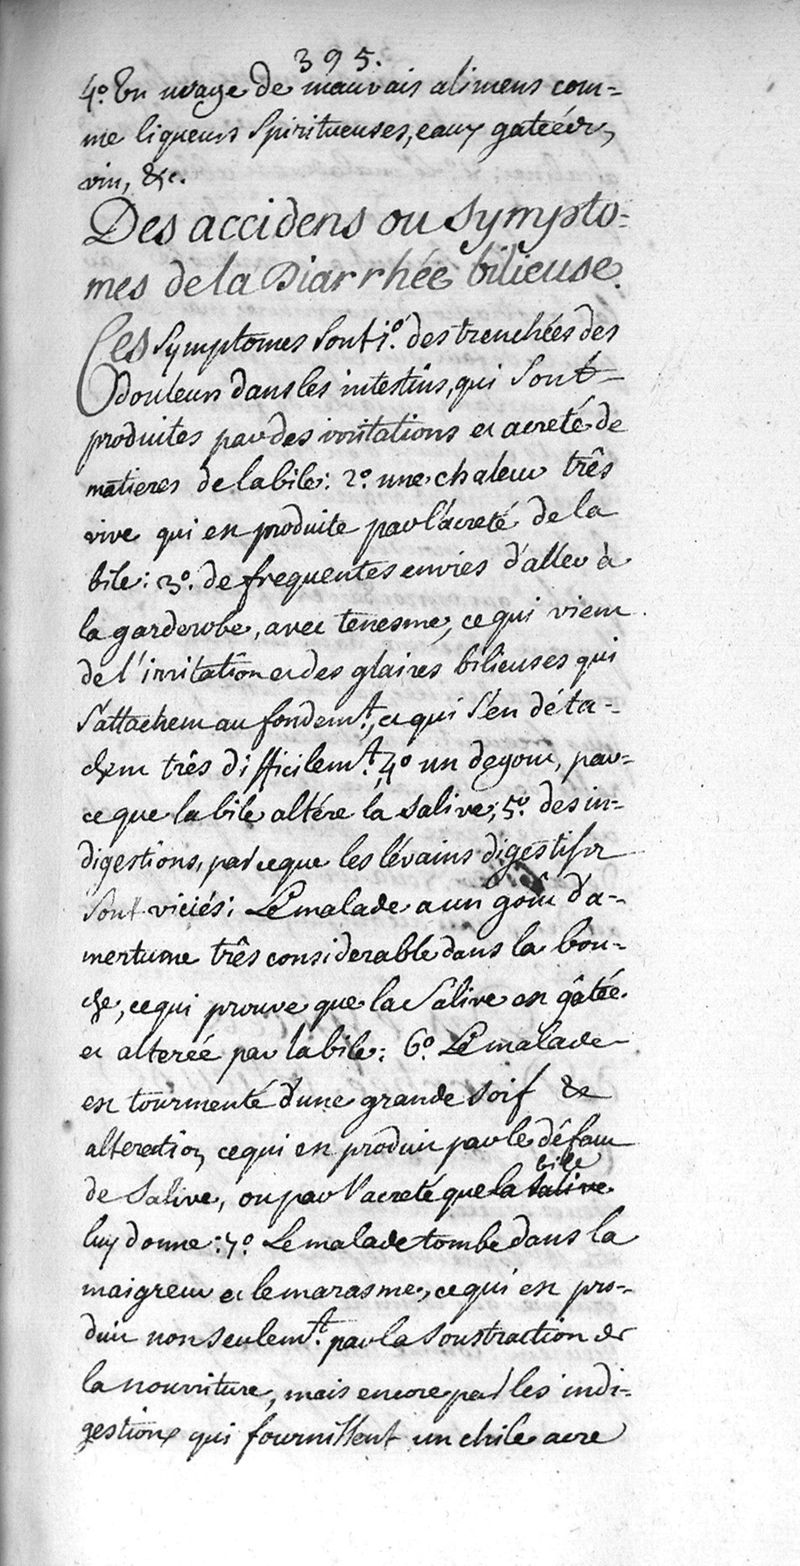 395.
4.° Un usage de mauvais alimens com-
me liqueurs Spiritueuses, eaux gateés,
vin, &c.
Des accidens ou Sympto-
mes de la Diarrhée bilieuse.
Ces Symptomes Sont 1.° des trenchées des
douleurs dans les intestins, qui Sont
produites par des irritations et acreté de
matieres de la bile: 2.° une chaleur três
vive qui est produite par l'acreté de la
bile: 3.° de frequentes envies d'aller à
la garderobe, avec tenesme, ce qui vient
de l'irritation et des glaires bilieuses qui
s'attachent au fondem.t, et qui S'en déta-
chent três difficilem.t 4.° un degout, par-
ce que la bile altére la salive; 5.° des in-
digestions, parceque les lévains digestifs
Sont viciés; Le malade a un goût d'a-
mertume três considerable dans la bou-
che, ce qui prouve que la Salive est gâtée
et altereé par la bile: 6.° Le malade
est tourmenté d'une grande soif &
alteration ce qui est produit par le défaut
de Salive, ou par l'acreté que la salive bile
luy donne: 7.° Le malade tombe dans la
maigreur et le marasme, ce qui est pro-
duit non seulem.t par la Soustraction de
la nourriture, mais encore par les indi-
gestions qui fournissent un chile acre